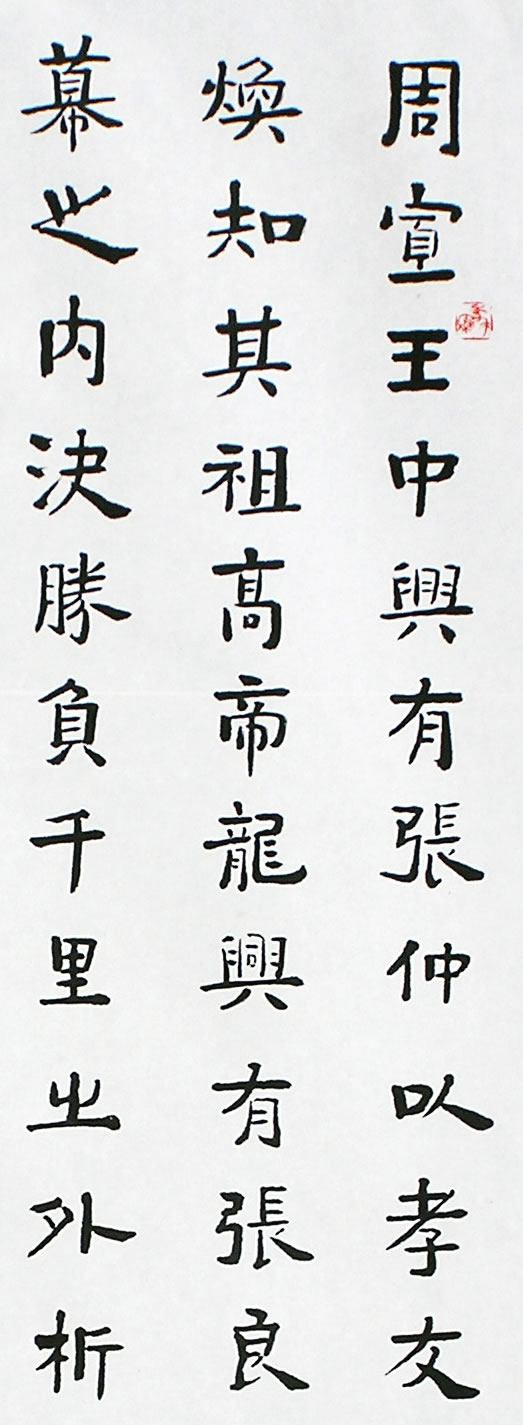 周宣王中興有張仲以孝友
煥知其祖高帝龍興有張良
幕之内決勝負千里之外析